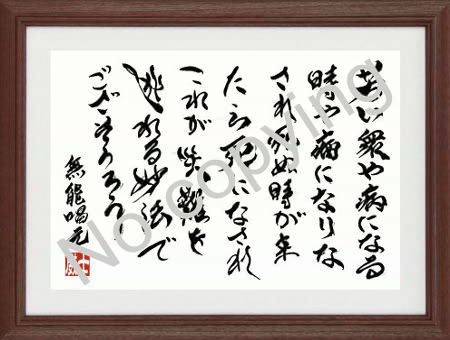 若い衆や病になる
時や病になりな
され死ぬ時が来
たら死になされ
これが災難を
逃れる妙法で
ござそうろう
無能唱元
No copying